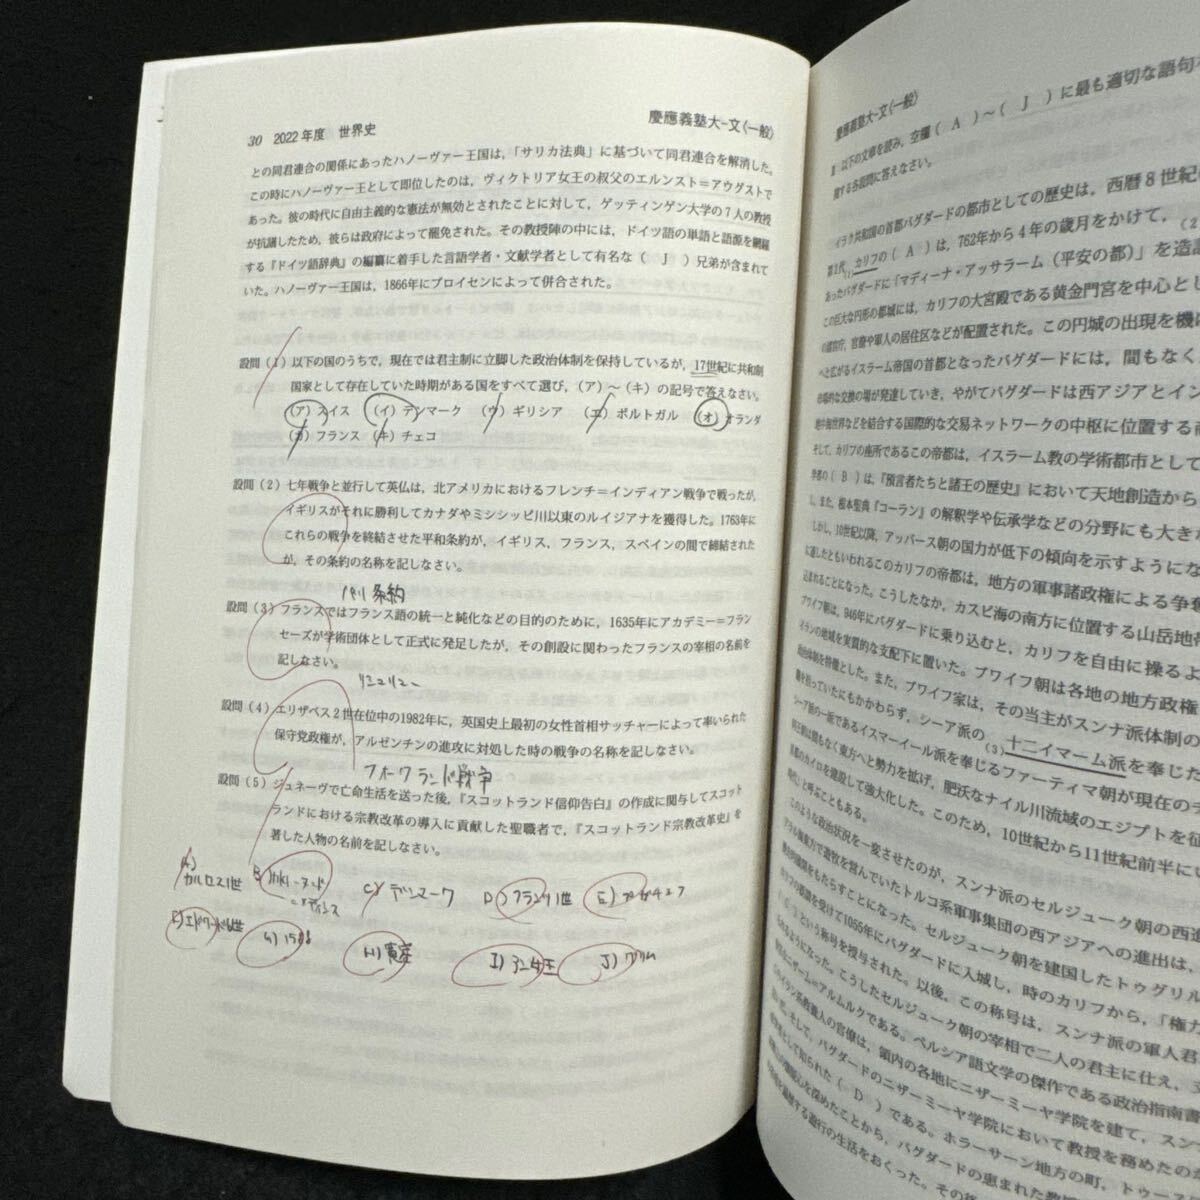 30 2022年度 世界史
慶應義塾大-文〈一般〉
との同君連合の関係にあったハノーヴァー王国は，「サリカ法典」に基づいて同君連合を解消した。
この時にハノーヴァー王として即位したのは，ヴィクトリア女王の叔父のエルンスト＝アウグストで
あった。彼の時代に自由主義的な憲法が無効とされたことに対して，ゲッティンゲン大学の7人の教授
が抗議したため，彼らは政府によって罷免された。その教授陣の中には，ドイツ語の単語と語源を網羅
する『ドイツ語辞典』の編纂に着手した言語学者・文献学者として有名な（ J ）兄弟が含まれて
いた。ハノーヴァー王国は，1866年にプロイセンによって併合された。
設問（1）以下の国のうちで，現在では君主制に立脚した政治体制を保持しているが，17世紀に共和制
国家として存在していた時期がある国をすべて選び，（ア）～（キ）の記号で答えなさい。
（ア）スイス （イ）デンマーク （ウ）ギリシア （エ）ポルトガル （オ）オランダ
（カ）フランス （キ）チェコ
設問（2）七年戦争と並行して英仏は，北アメリカにおけるフレンチ＝インディアン戦争で戦ったが，
イギリスがそれに勝利してカナダやミシシッピ川以東のルイジアナを獲得した。1763年に
これらの戦争を終結させた平和条約が，イギリス，フランス，スペインの間で締結された
が，その条約の名称を記しなさい。
パリ条約
設問（3）フランスではフランス語の統一と純化などの目的のために，1635年にアカデミー＝フラン
セーズが学術団体として正式に発足したが，その創設に関わったフランスの宰相の名前を
記しなさい。
リシュリュー
設問（4）エリザベス2世在位中の1982年に，英国史上最初の女性首相サッチャーによって率いられた
保守党政権が，アルゼンチンの進攻に対処した時の戦争の名称を記しなさい。
フォークランド戦争
設問（5）ジュネーヴで亡命生活を送った後，『スコットランド信仰告白』の作成に関与してスコット
ランドにおける宗教改革の導入に貢献した聖職者で，『スコットランド宗教改革史』を
著した人物の名前を記しなさい。
A) カルロス1世
C) デンマーク D) フランソワ1世 E)
F) エドワード6世 G) 1588 H) 寛容 I) アン女王 J) グリム
慶應義塾大-文〈一般〉
Ⅱ 以下の文章を読み，空欄（ A ）～（ J ）に最も適切な語句
関する各設問に答えなさい。
イラク共和国の首都バグダードの都市としての歴史は，西暦8世紀
第2代カリフの（ A ）は，762年から4年の歳月をかけて，
(1)
(2
あったバグダードに「マディーナ・アッサラーム（平安の都）」を造
この巨大な円形の都城には，カリフの大宮殿である黄金門宮を中心とし
官衙や軍人の居住区などが配置された。この円城の出現を機に
イスラーム帝国の首都となったバグダードには，間もなく
交換の場が発達していき，やがてバグダードは西アジアとイン
世界などを結合する国際的な交易ネットワークの中枢に位置する
そして，カリフの座所であるこの帝都は，イスラーム教の学術都市として
（ B ）は，『預言者たちと諸王の歴史』において天地創造から
また，根本聖典『コーラン』の解釈学や伝承学などの分野にも大き
しかし，10世紀以降，アッバース朝の国力が低下の傾向を示すようにな
に達したともいわれるこのカリフの帝都は，地方の軍事諸政権による争奪
込まれることになった。こうしたなか，カスピ海の南方に位置する山岳地帯
ブワイフ朝は，946年にバグダードに乗り込むと，カリフを自由に操るよ
イランの地域を実質的な支配下に置いた。ブワイフ朝は各地の地方政権
を特徴とした。また，ブワイフ家は，その当主がスンナ派体制の
っていたにもかかわらず，シーア派の十二イマーム派を奉じた
(3)
シーア派の一派であるイスマーイール派を奉じるファーティマ朝が現在の
は間もなく東方へと勢力を拡げ，肥沃なナイル川流域のエジプトを征
カイロを建設して強大化した。このため，10世紀から11世紀前半に
と呼ぶこともある。
このような政治状況を一変させたのが，スンナ派のセルジューク朝の西進
アラル海東方で遊牧を営んでいたトルコ系軍事集団の西アジアへの進出は，
をもたらすことになった。セルジューク朝を建国したトゥグリル
を受けて1055年にバグダードに入城し，時のカリフから，「権力
という称号を授与された。以後，この称号は，スンナ派の軍人君
るようになった。こうしたセルジューク朝の宰相で二人の君主に仕え，
ニザーム＝アルムルクである。ペルシア語文学の傑作である政治指南書
イラン系教養人の官僚は，領内の各地にニザーミーヤ学院を建て，スン
そして，バグダードのニザーミーヤ学院において教授を務めたの
として知られた（ D ）である。ホラーサーン地方の町，トゥー
心を深めたことから，バグダードの恵まれた
する遊行の生活をおくった。その後